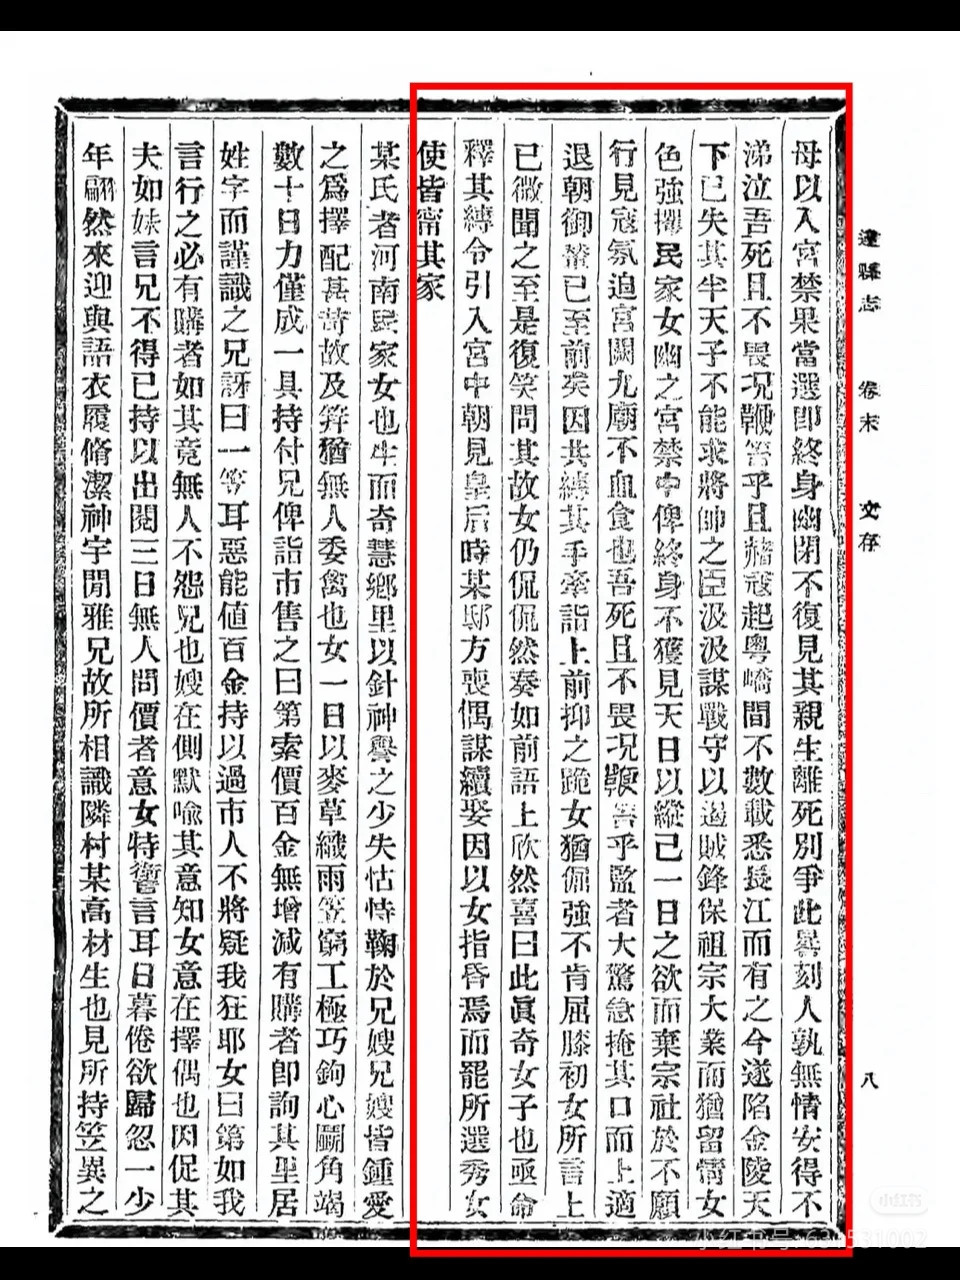 達縣志 卷末 文存 八
母以入宮禁果當選即終身幽閉不復見其親生離死別爭此晷刻人孰無情安得不
涕泣吾死且不畏況鞭笞乎且赭寇起粵嶠間不數載悉長江而有之今遂陷金陵天
下已失其半天子不能求將帥之臣汲汲謀戰守以遏賊鋒保祖宗大業而猶留情女
色強擢民家女幽之宮禁中俾終身不獲見天日以縱己一日之欲而棄宗社於不願
行見寇氛迫宮闕九廟不血食也吾死且不畏況鞭笞乎監者大驚急掩其口而上適
退朝御輦已至前矣因共縛其手牽詣上前抑之跪女猶倔強不肯屈膝初女所言上
已微聞之至是復笑問其故女仍侃侃然奏如前語上欣然喜曰此眞奇女子也亟命
釋其縛令引入宮中朝見皇后時某邸方喪偶謀續娶因以女指昏焉而罷所選秀女
使皆甯其家
某氏者河南民家女也生而奇慧鄉里以針神譽之少失怙恃鞠於兄嫂兄嫂皆鍾愛
之爲擇配甚苛故及笄猶無人委禽也女一日以麥草織雨笠窮工極巧鉤心鬭角竭
數十日力僅成一具持付兄俾詣市售之曰第索價百金無增減有購者卽詢其里居
姓字而謹識之兄訝曰一笠耳惡能値百金持以過市人不將疑我狂耶女曰第如我
言行之必有購者如其竟無人不怨兄也嫂在側默喻其意知女意在擇偶也因促其
夫如妹言兄不得已持以出閱三日無人問價者意女特讆言耳日暮倦欲歸忽一少
年翩然來迎與語衣履脩潔神宇閒雅兄故所相識隣村某高材生也見所持笠異之
小红书
小红书号:631531002